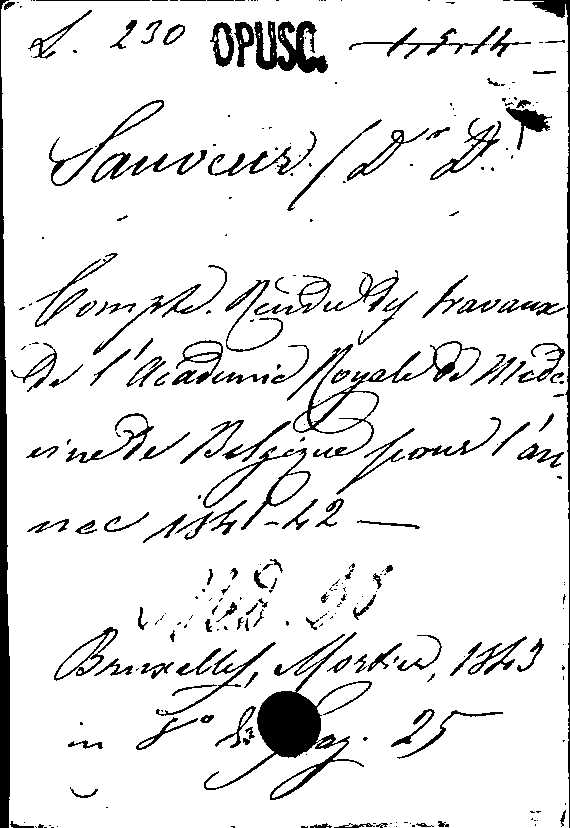 L. 230 OPUSC. 1,5,14
Sauveur (Dr D.)
Compte Rendu des travaux
de l'Academie Royale de Mede-
cine de Belgique pour l'an-
nee 1841-42 —
Med. 35
Bruxelles, Mortier, 1843
in 8o de pag. 25